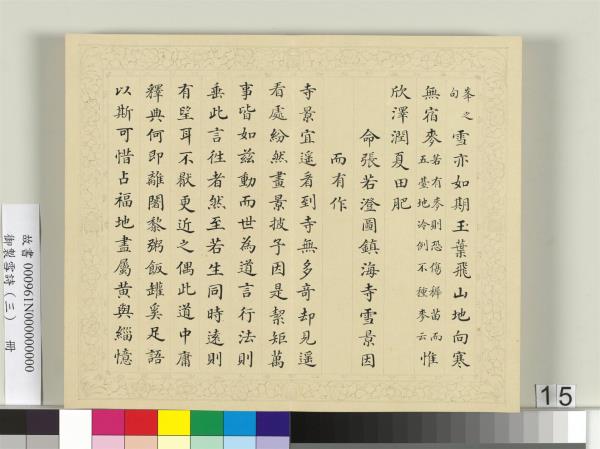 峯之句雪亦如期玉葉飛山地向寒
無宿麥若有麥則恐傷稺苗而五臺地冷例不種麥云惟
欣澤潤夏田肥
命張若澄圖鎮海寺雪景因
而有作
寺景宜遥看到寺無多奇却見遥
看處紛然畫景披予因是絜矩萬
事皆如兹動而世為道言行法則
垂此言徃者然至若生同時遠則
有望耳不猒更近之偶此道中庸
釋典何即離闍黎粥飯罐奚足語
以斯可惜占福地盡屬黄與緇憶
故書000961N000000000
御製雪詩(三) 冊
15